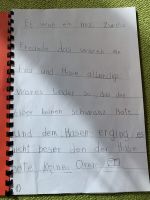 Es war en mal Zwei
Freunde das waren en
und Hase allerdings
wares leider so das der
aber keinen Schwanz hate
und dem Hasen erging es
nicht beser den der Hase
hate keine Oren